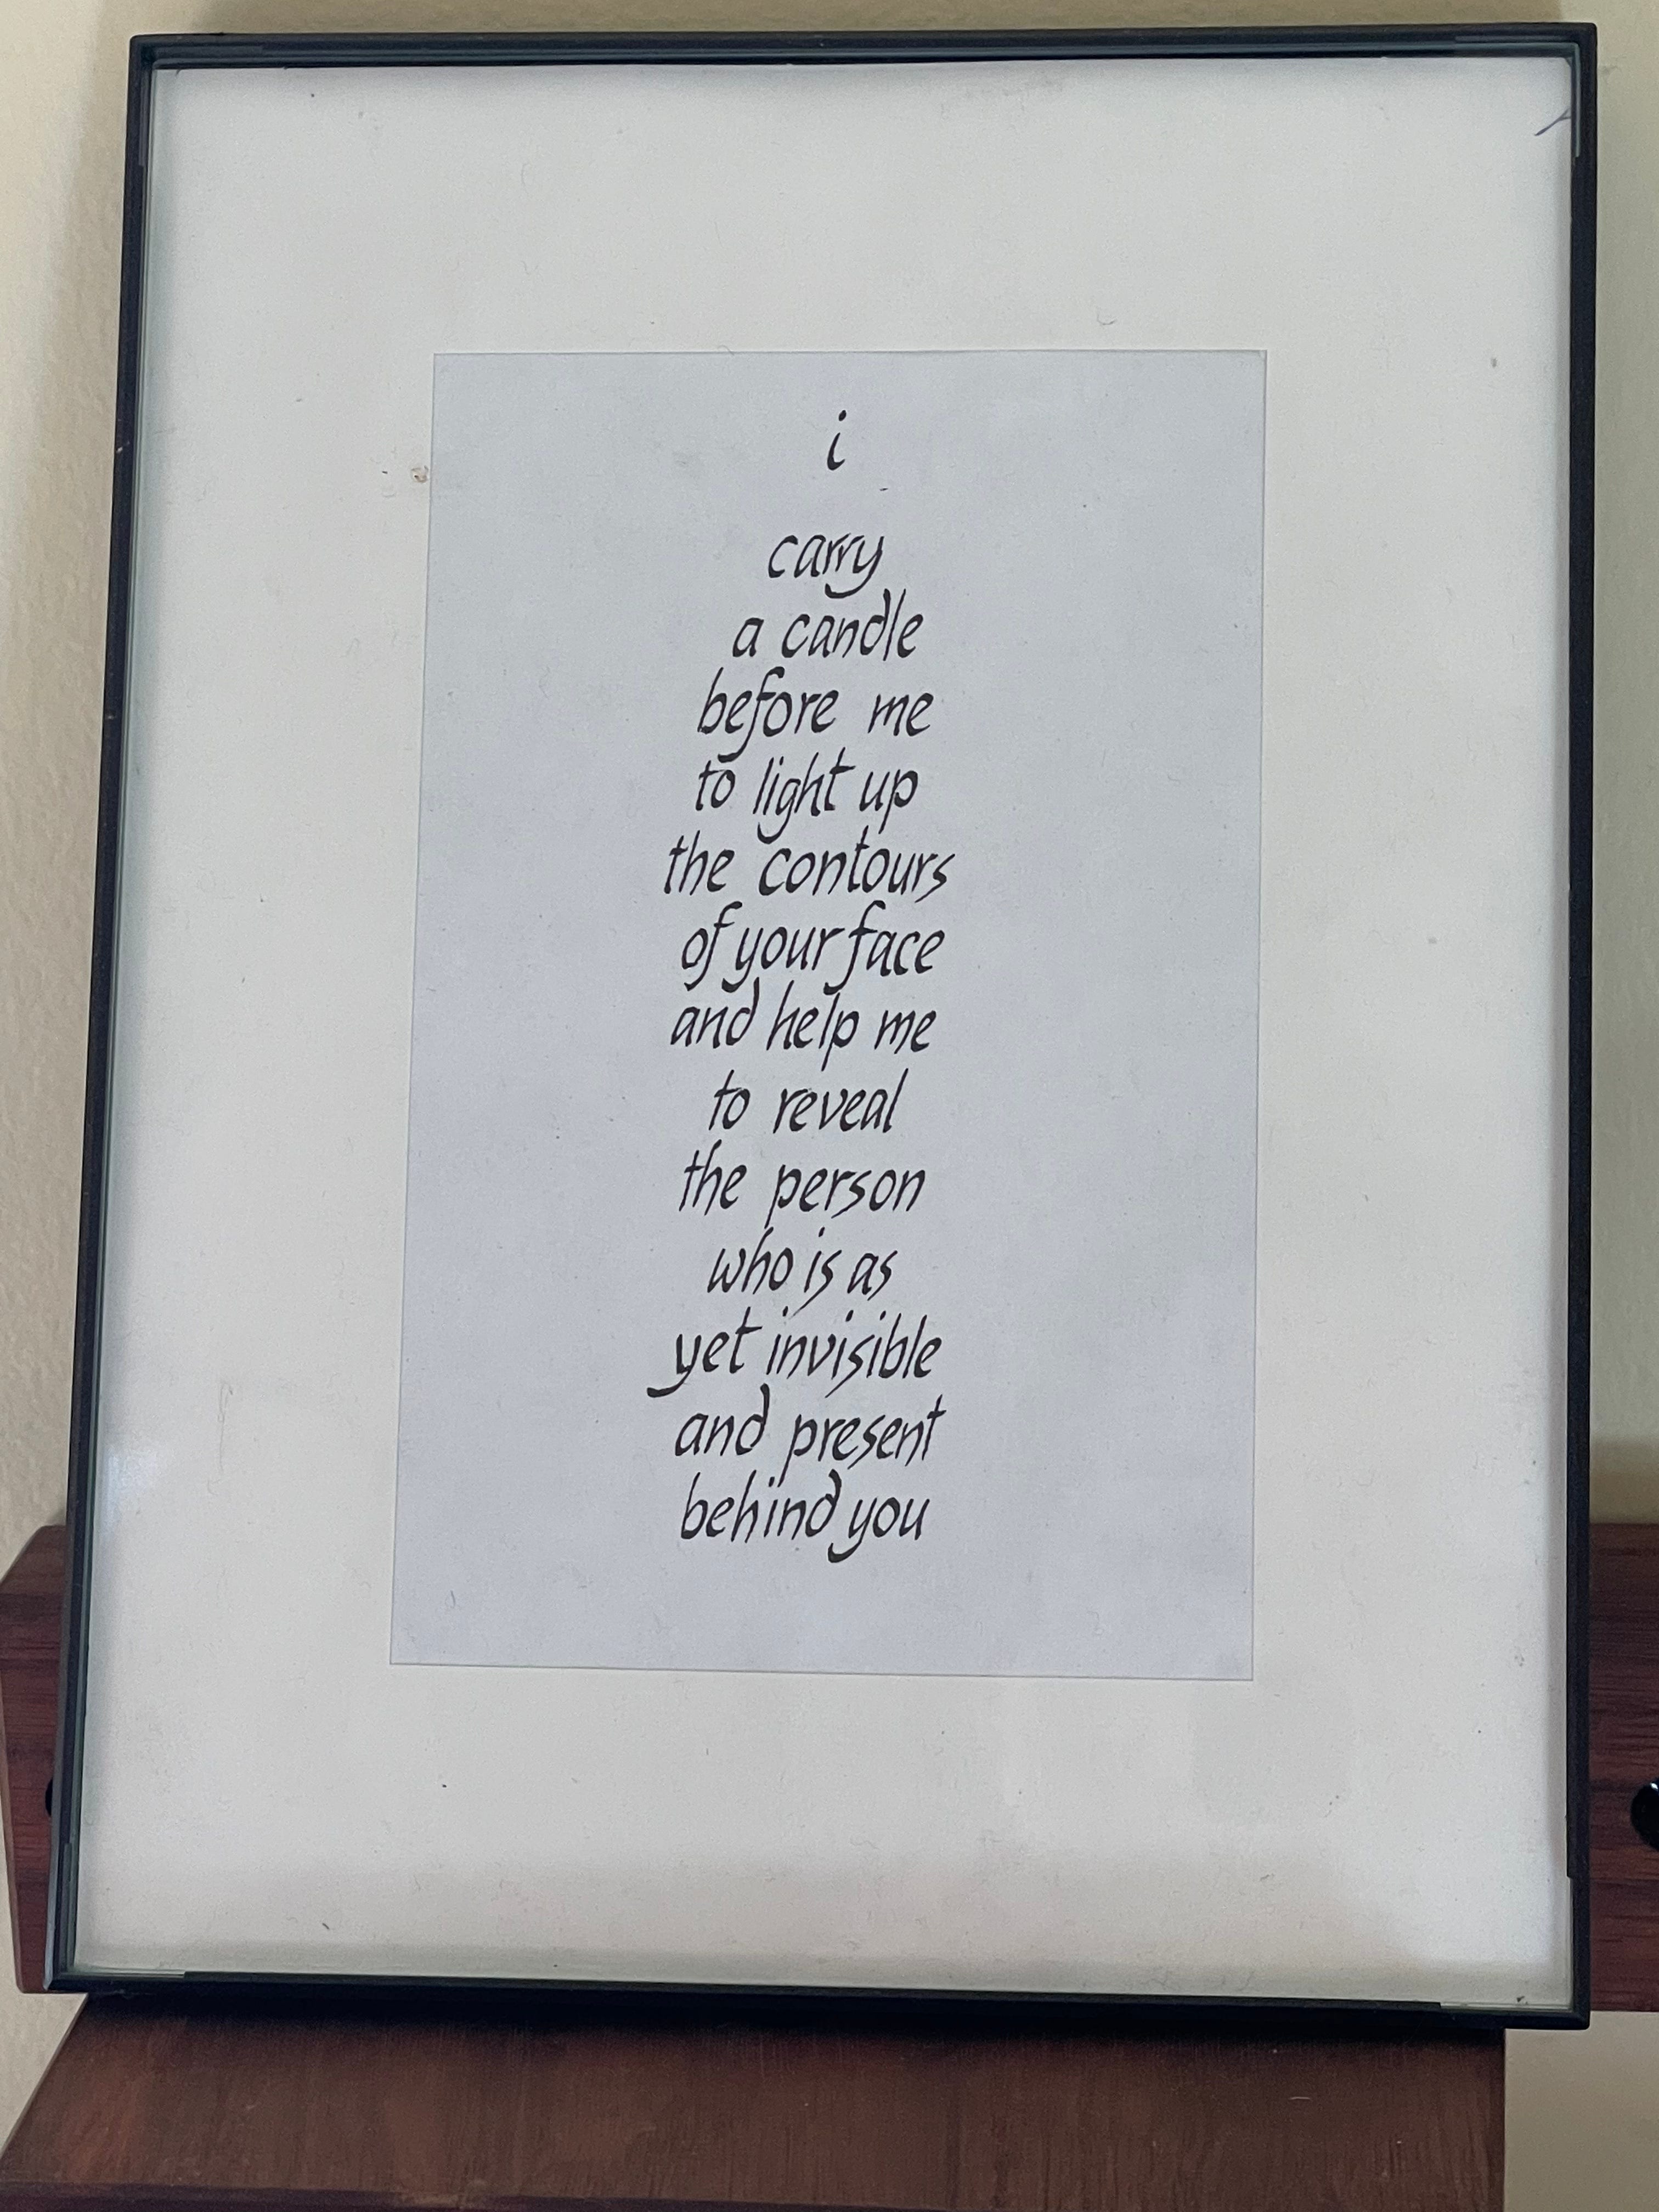 i
carry
a candle
before me
to light up
the contours
of your face
and help me
to reveal
the person
who is as
yet invisible
and present
behind you